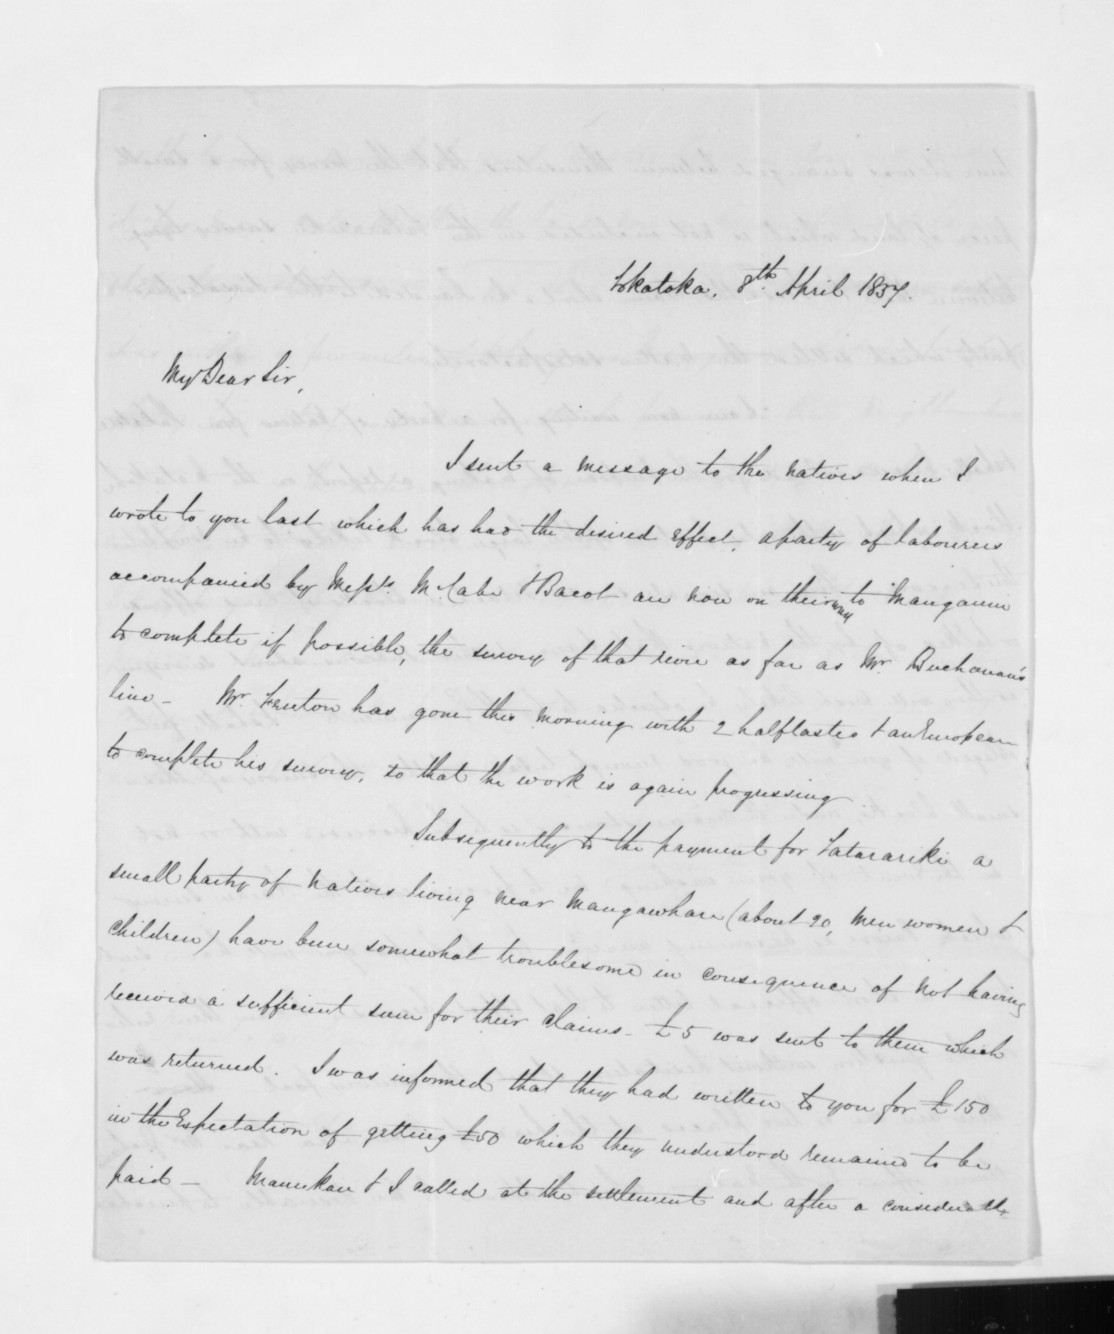 Tokatoka. 8th. April 1857.
My Dear Sir,
I sent a message to the natives when I
wrote to you last which has had the desired effect, a party of labourers
accompanied by Messrs. McCabe & Bacot are now on their way to Manganui
to complete if possible, the survey of that river as far as Mr. Buchanan's
line - Mr. Fenton has gone this morning with 2 halfcastes & an European
to complete his survey, so that the work is again progressing
Subsequently to the payment for Tatarariki a
small party of natives living near Mangawhare (about 20, men women &
children) have been somewhat troublesome in consequence of not having
received a sufficient sum for their claims - £5 was sent to them which
was returned. I was informed that they had written to you for £150
in the Expectation of getting £50 which they understood remained to be
paid - Manukau & I called at the settlement and after a considerable